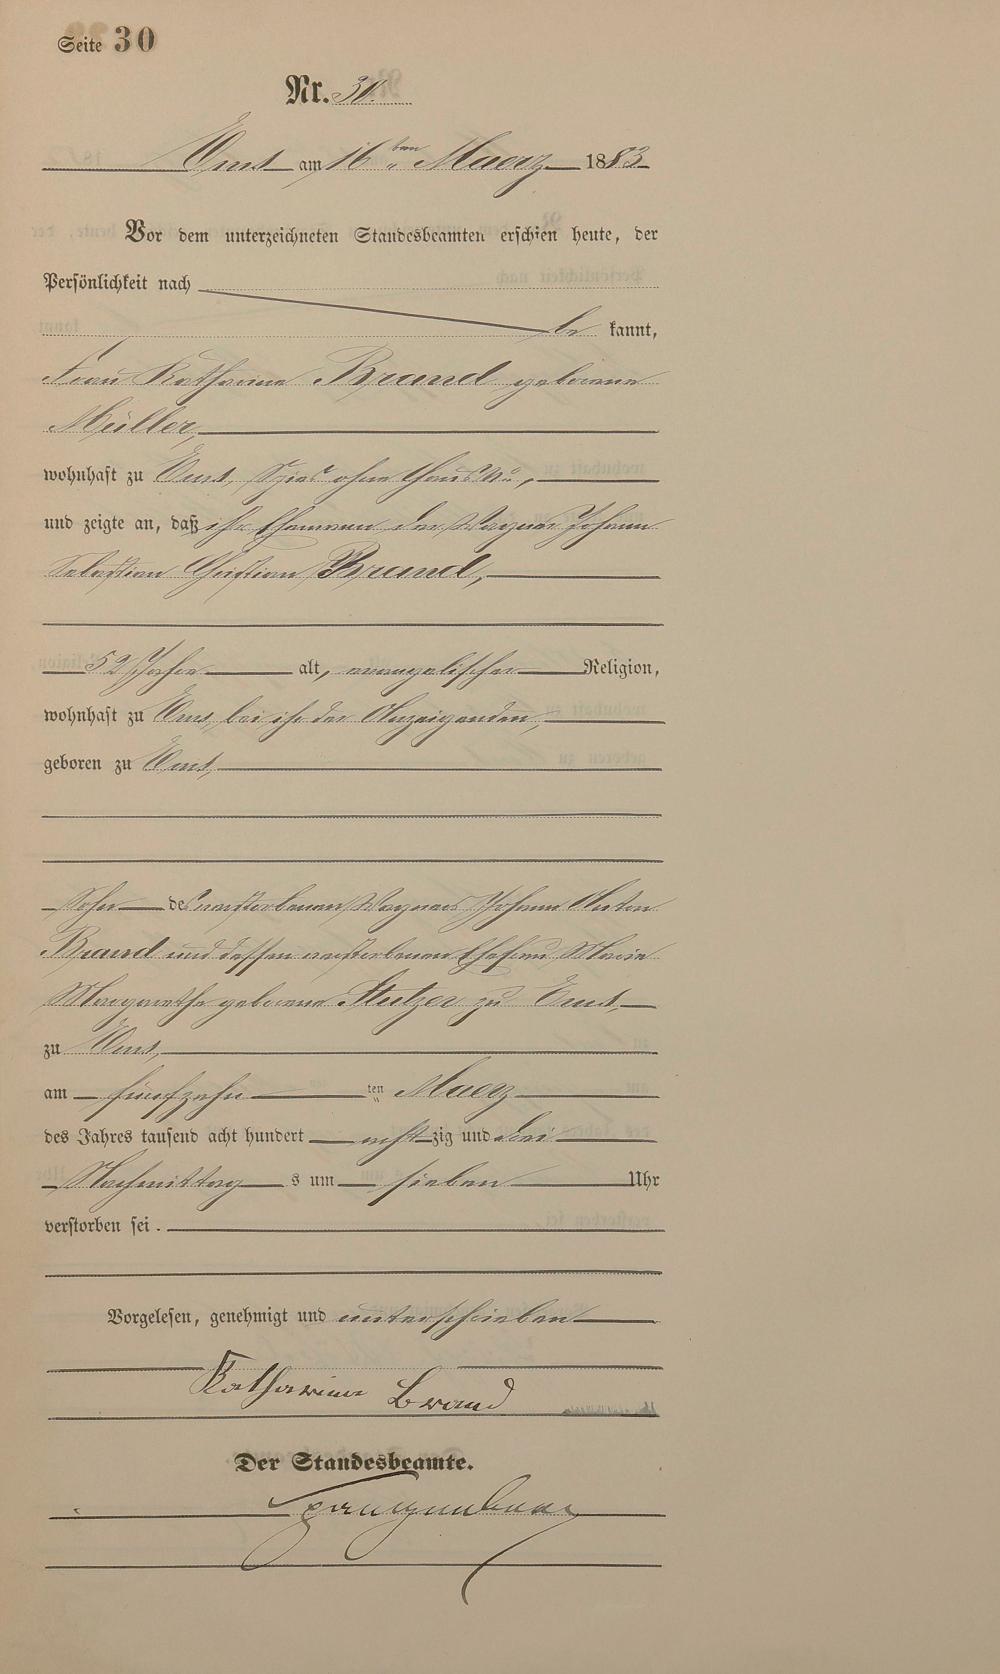 Seite 30
Nr. 30.
Ems am 16ten Maerz 1883
Vor dem unterzeichneten Standesbeamten erschien heute, der
Persönlichkeit nach
be kannt,
Frau Katharine Brand geborene
Müller,
wohnhaft zu Ems, Spies ohne Haus No,
und zeigte an, daß ihr Ehemann der Wagner Johann
Sebastian Christian Brand,
52 Jahre alt, evangelischer Religion,
wohnhaft zu Ems, bei ihr der Anzeigenden,
geboren zu Ems,
Sohn des verstorbenen Wagners Johann Anton
Brand und dessen verstorbenen Ehefrau Marie
Margarethe geborene Stutzer zu Ems,
zu Ems,
am fünfzehn ten Maerz
des Jahres tausend acht hundert acht zig und drei
Nachmittag s um sieben Uhr
verstorben sei.
Vorgelesen, genehmigt und unterschrieben
Katharina Brand
Der Standesbeamte.